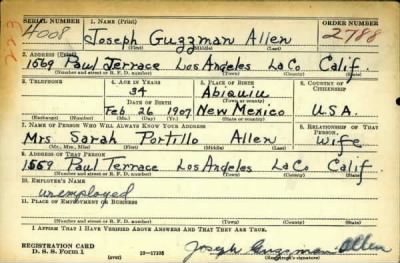 SERIAL NUMBER 1. NAME (Print) ORDER NUMBER
4008 Joseph Guzzman Allen 2788
223
(First) (Middle) (Last)
2. ADDRESS (Print)
1569 Paul Terrace Los Angeles La Co Calif.
(Number and street or R. F. D. number) (Town) (County) (State)
3. TELEPHONE 4. AGE IN YEARS 5. PLACE OF BIRTH 6. COUNTRY OF CITIZENSHIP
34 Abiquiu
DATE OF BIRTH (Town or county)
Feb 26 1907 New Mexico U.S.A.
(Exchange) (Number) (Mo.) (Day) (Yr.) (State or country)
7. NAME OF PERSON WHO WILL ALWAYS KNOW YOUR ADDRESS 8. RELATIONSHIP OF THAT PERSON
Mrs Sarah Portillo Allen Wife
(Mr., Mrs., Miss) (First) (Middle) (Last)
9. ADDRESS OF THAT PERSON
1569 Paul Terrace Los Angeles La Co Calif
(Number and street or R. F. D. number) (Town) (County) (State)
10. EMPLOYER'S NAME
unemployed
11. PLACE OF EMPLOYMENT OR BUSINESS
(Number and street or R. F. D. number) (Town) (County) (State)
I AFFIRM THAT I HAVE VERIFIED ABOVE ANSWERS AND THAT THEY ARE TRUE.
REGISTRATION CARD
D. S. S. Form 1 (over) Joseph Guzzman Allen
(Registrant's signature)